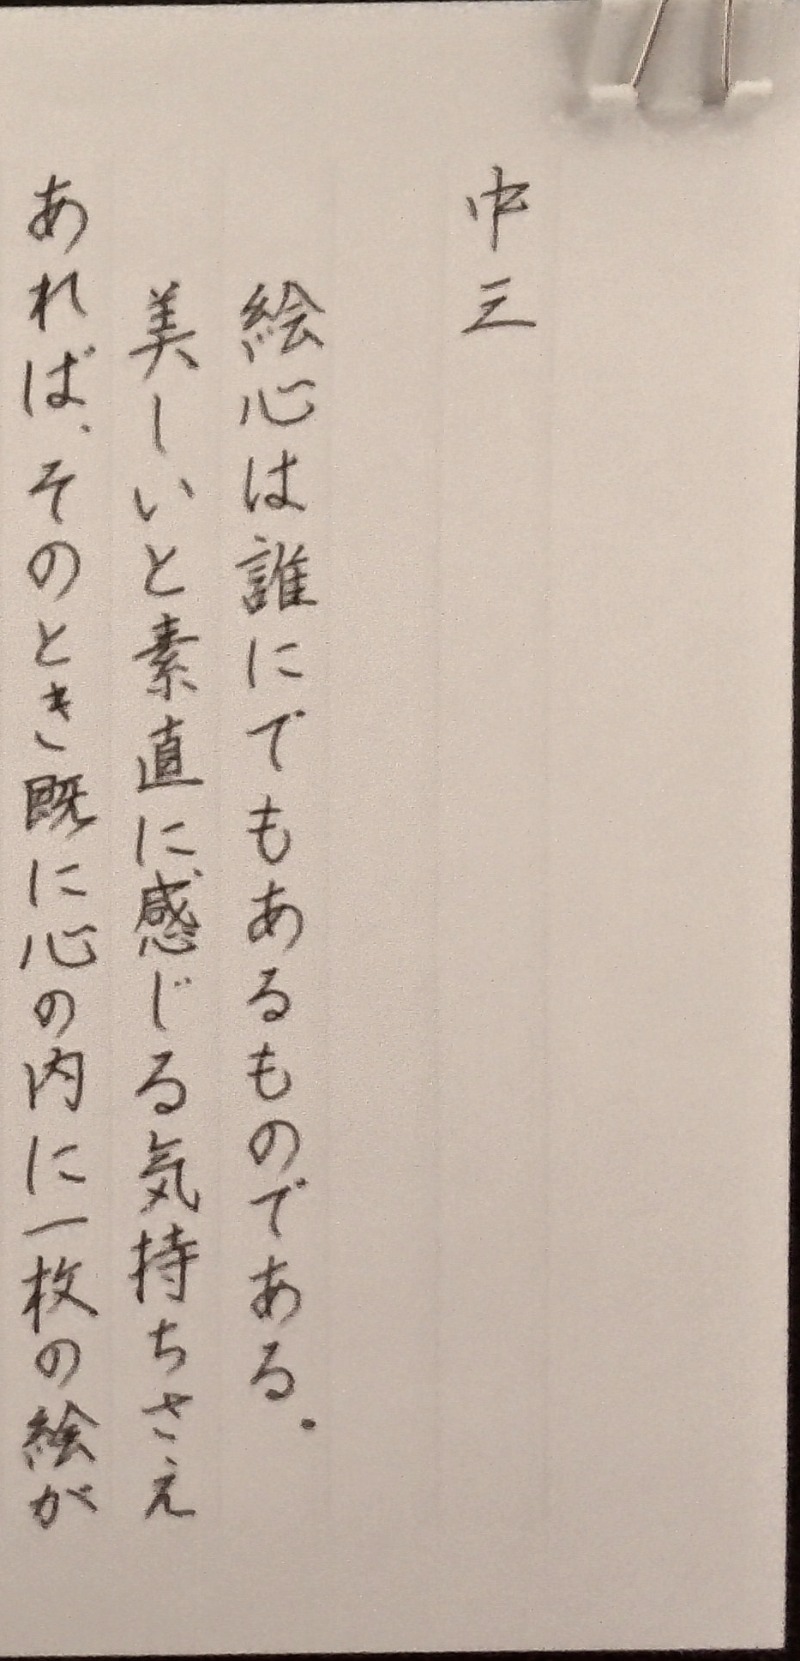 中三
絵心は誰にでもあるものである。
美しいと素直に感じる気持ちさえ
あれば、そのとき既に心の内に一枚の絵が